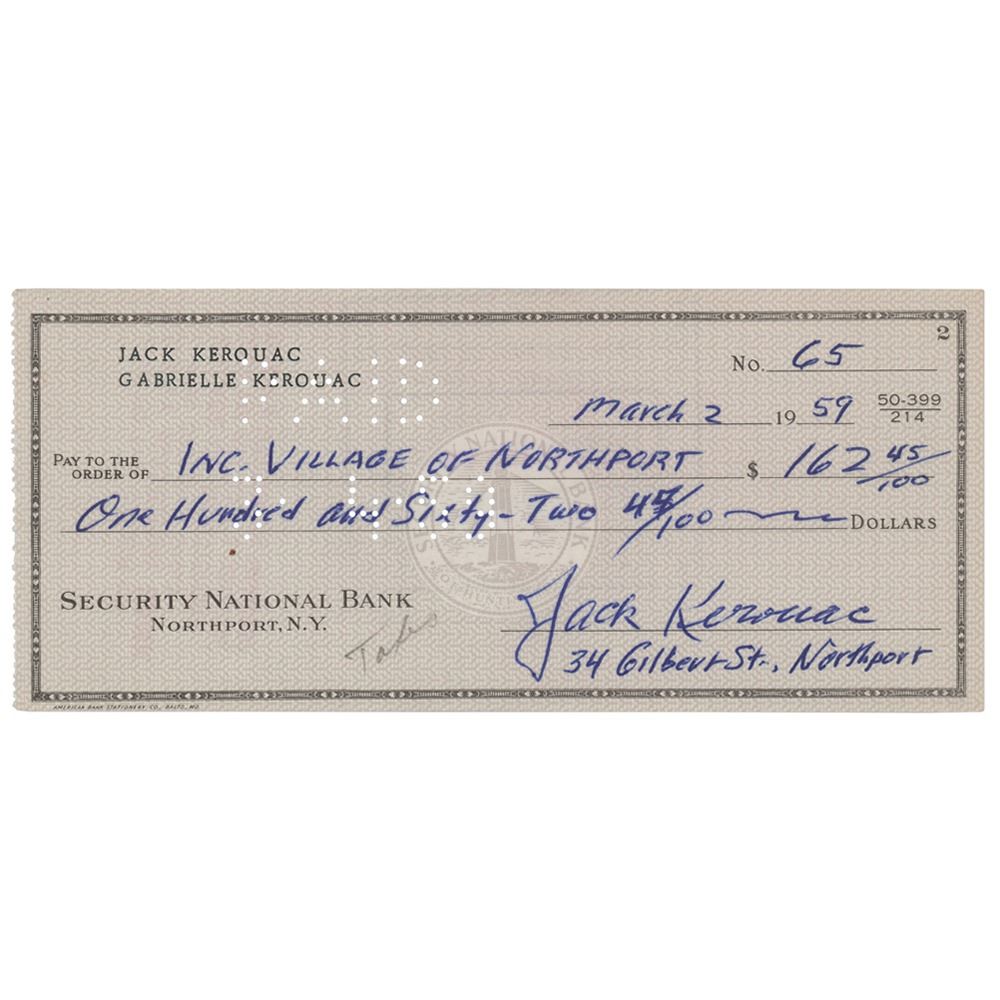 2
JACK KEROUAC
GABRIELLE KEROUAC
No. 65
March 2 19 59
50-399
214
PAY TO THE
ORDER OF INC. VILLAGE OF NORTHPORT $ 162 45/100
One Hundred and Sixty-Two 45/100 DOLLARS
SECURITY NATIONAL BANK
NORTHPORT, N.Y.
Taxes
Jack Kerouac
34 Gilbert St., Northport
AMERICAN BANK STATIONERY CO., BALTO., MD.